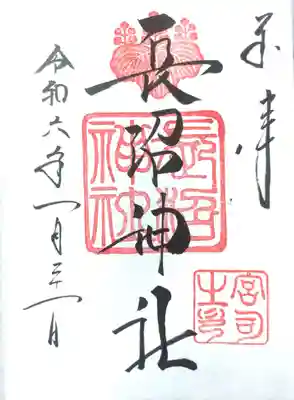 奉拝
長沼神社
長沼
神社
宮司
之印
令和六年一月 日